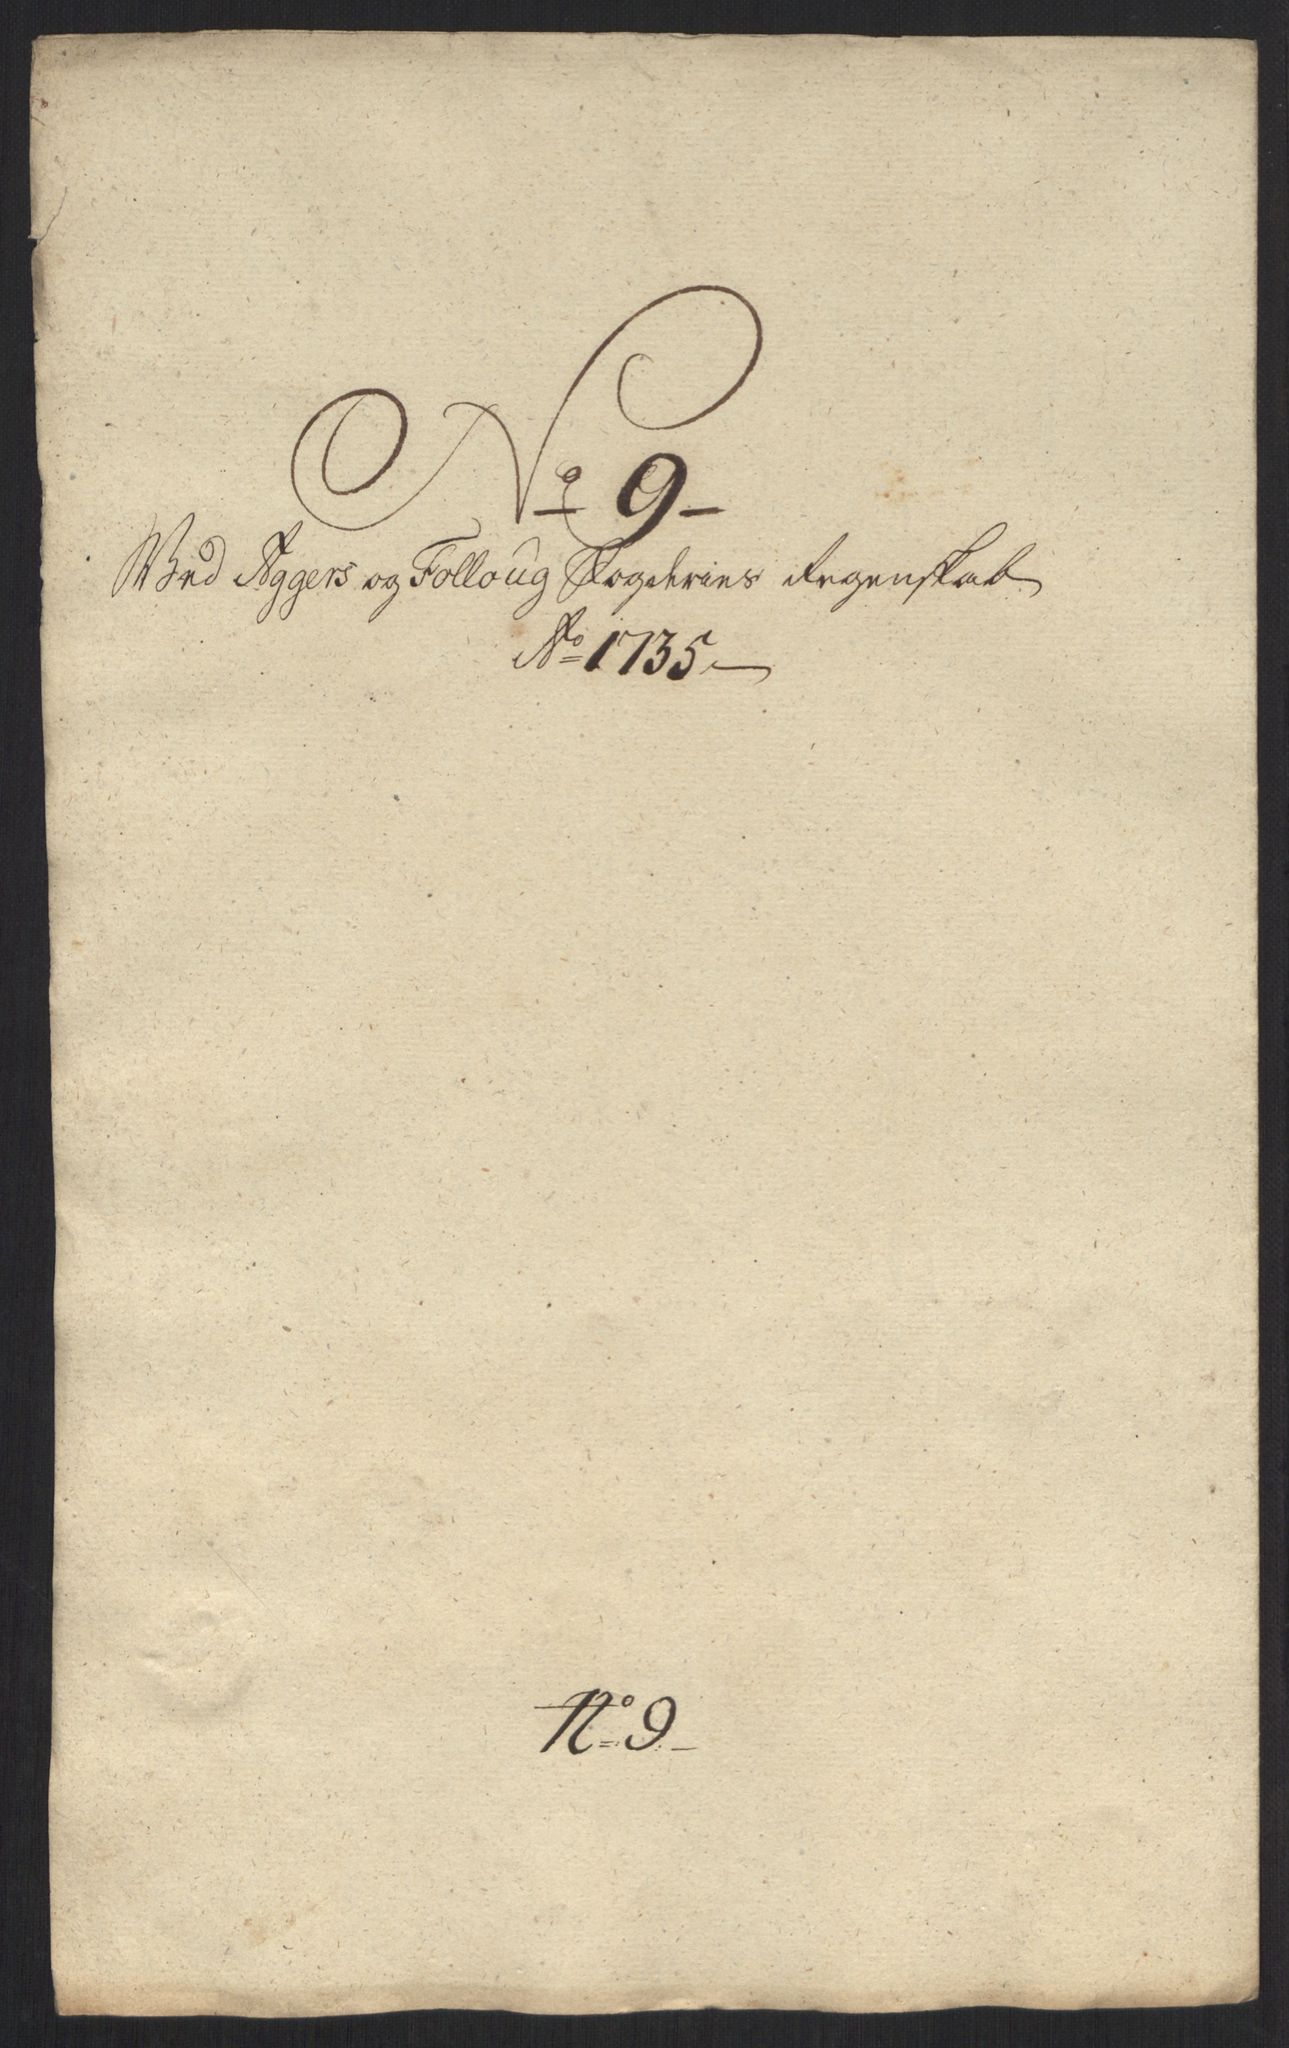 No 9
Wed Aggers og Folloug Fogderies Regenskab
Ao 1735
No 9